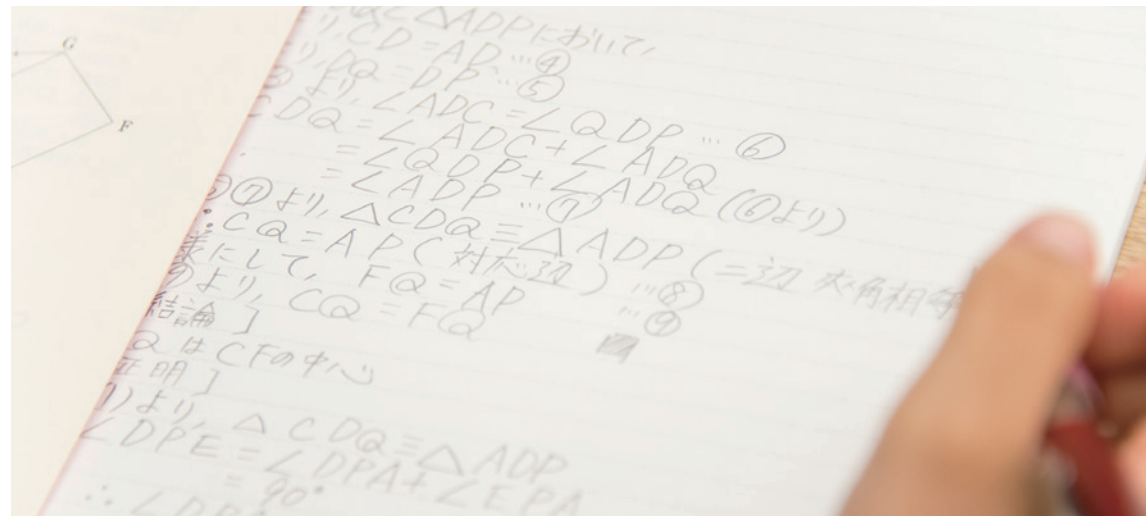 G
F
△ADPにおいて,
CD=AD…④
DQ=DP…⑤
より,∠ADC=∠QDP…⑥
CDQ=∠ADC+∠ADQ
=∠QDP+∠ADQ(⑥より)
=∠ADP…⑦
⑦より,△CDQ≡△ADP(二辺夾角相等
∴CQ=AP(対応辺)…⑧
にして,FQ=AP…⑨
より,CQ=FQ
結論]
QはCFの中心
証明]
1)より,△CDQ≡△ADP
∠DPE=∠DPA+∠EPA
=90°
∴∠DP